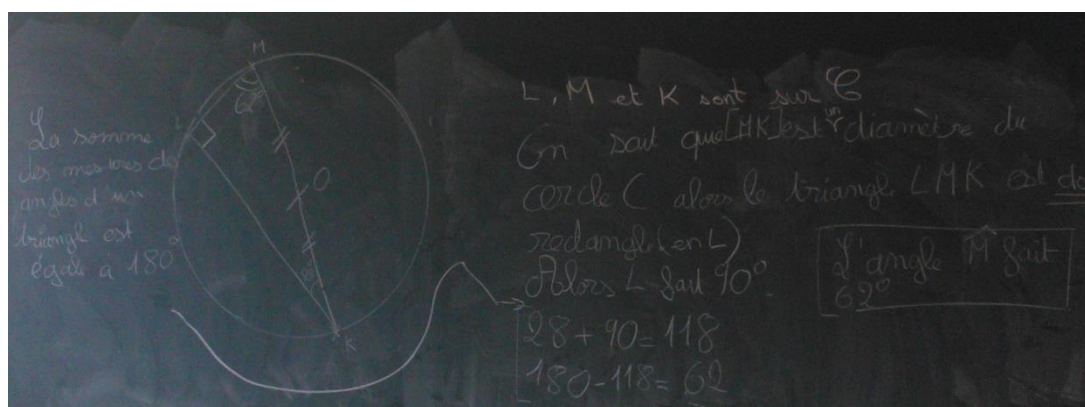 La somme
des mesures de
angles d'un
triangl est
égale à 180°
M
62°
L
O
28°
K
L, M et K sont sur C
On sait que [MK] est un diamètre du
cercle C alors le triangle LMK est
rectangle (en L)
Alors L fait 90°.
28 + 90 = 118
180 - 118 = 62
L'angle M̂ fait
62°